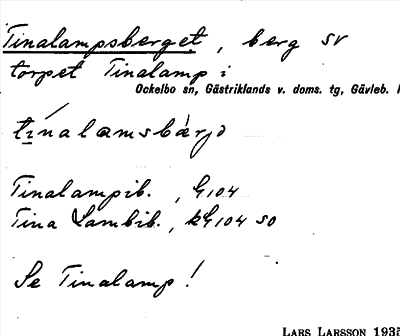 Tinalampsberget, berg SV
torpet Tinalamp i
Ockelbo sn, Gästriklands v. doms. tg, Gävleb.
tìnalamsbärjə
Tinalampib., G104
Tina Lambib., kG104 SO
Se Tinalamp!
LARS LARSSON 1935